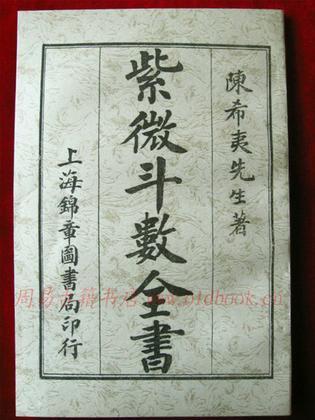 陳希夷先生著
紫微斗數全書
上海錦章圖書局印行
周易古籍书店 www.oldbook.cn